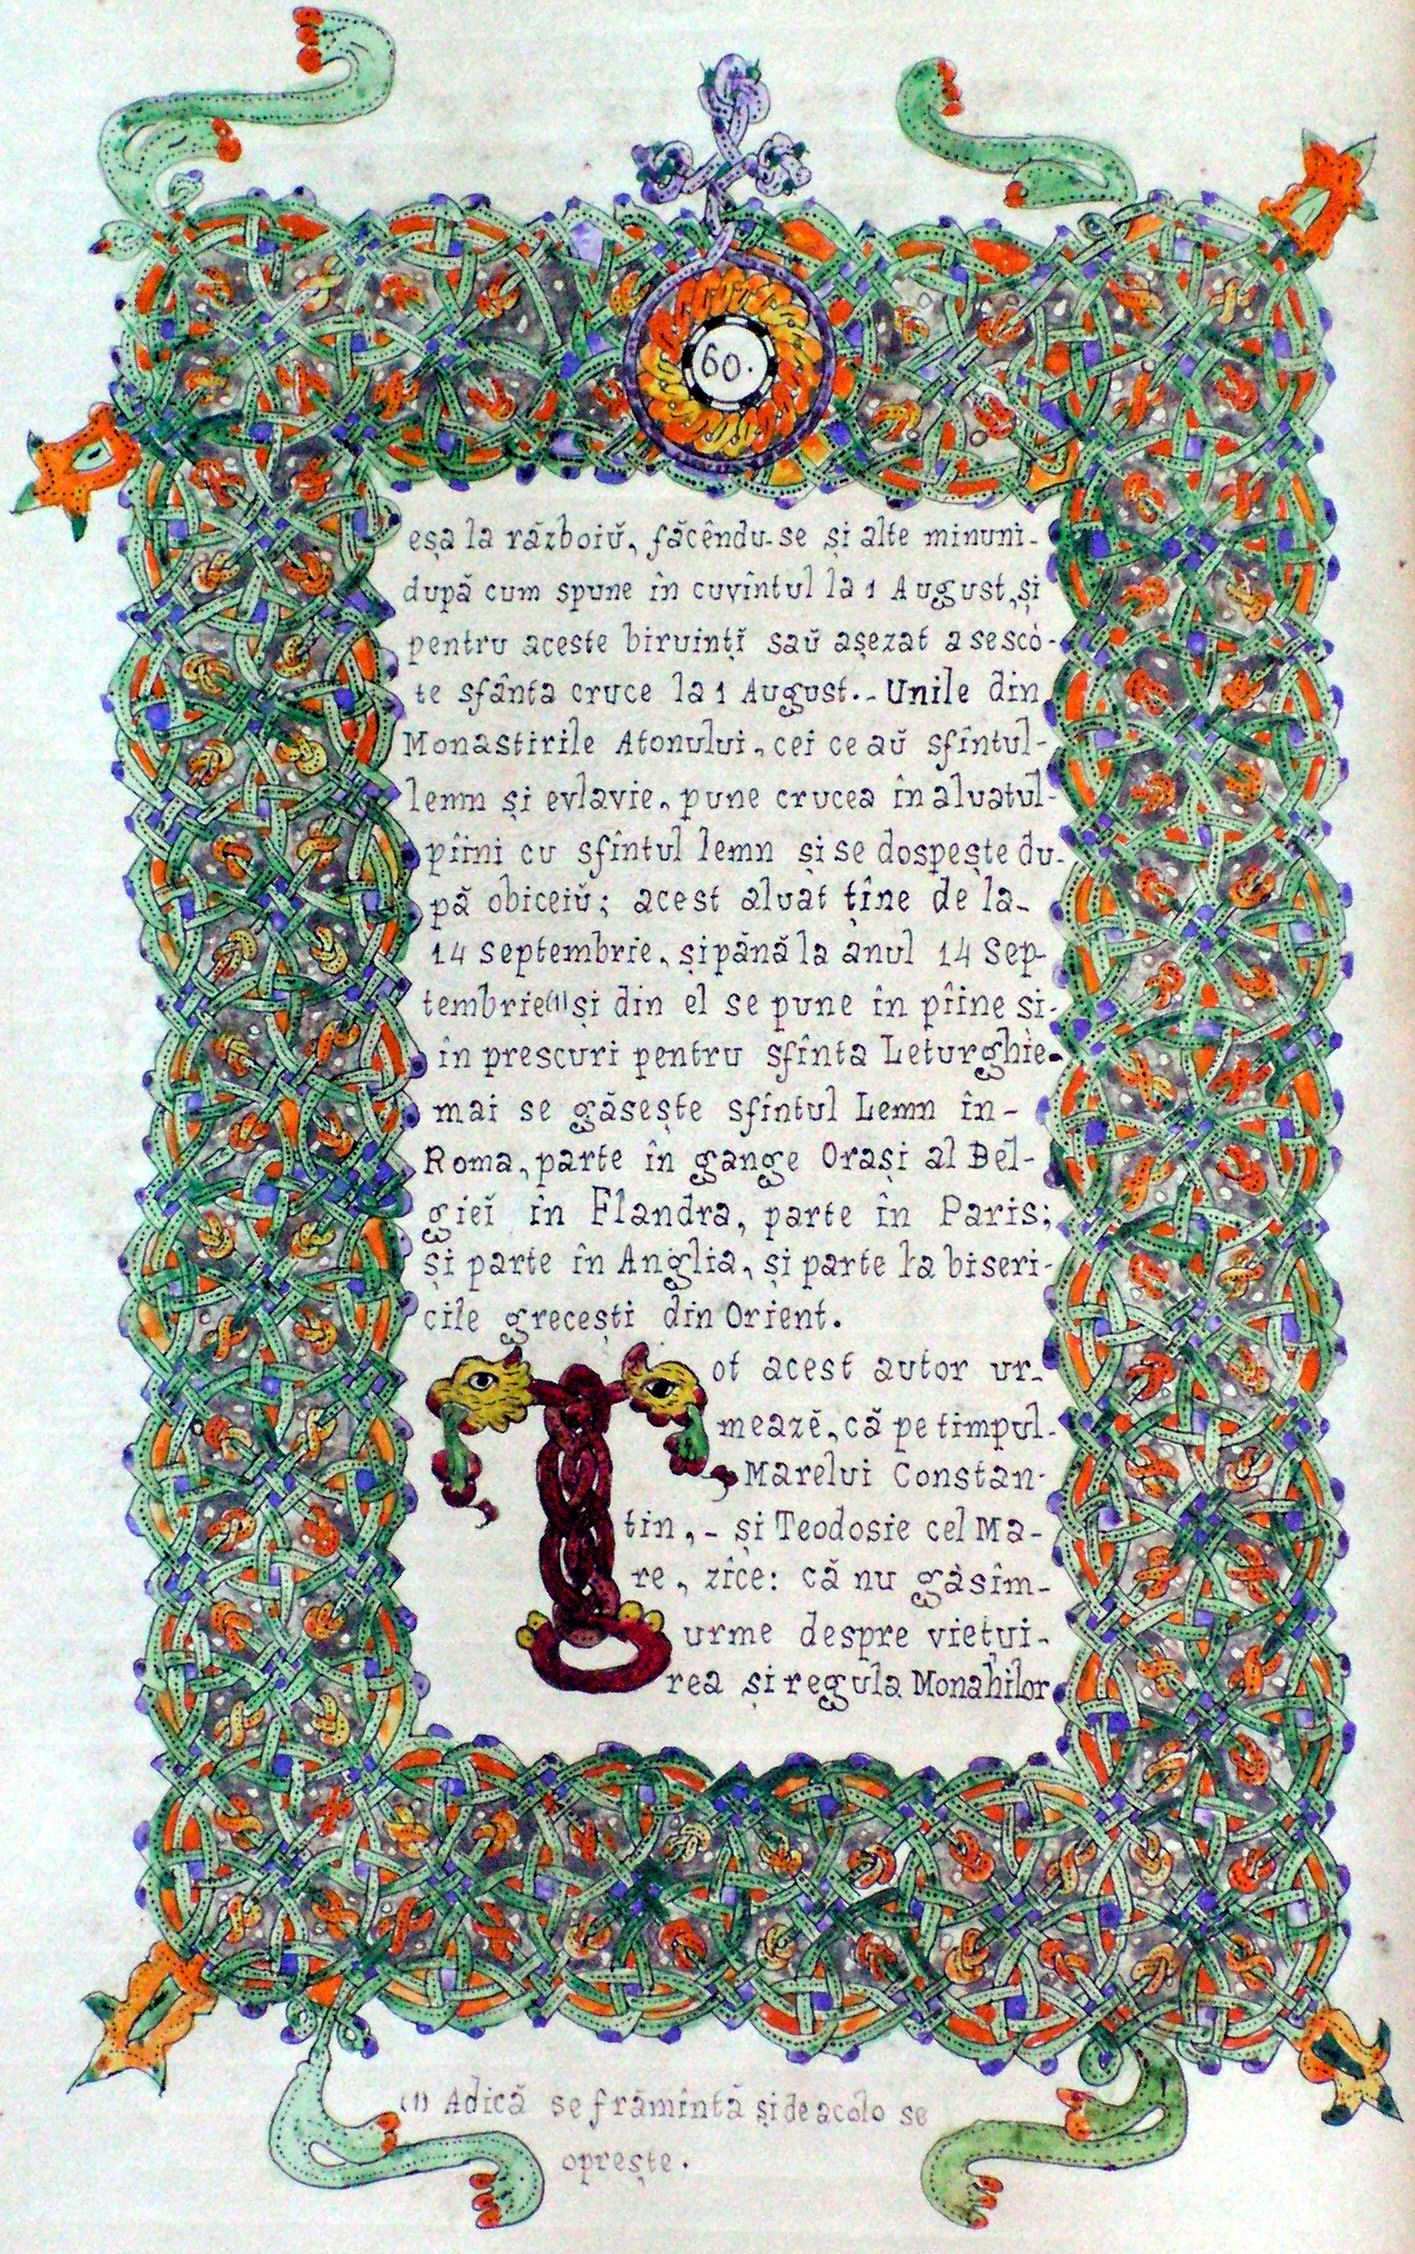 60.
eșa la războiŭ, făcêndu-se și alte minuni-
după cum spune în cuvîntul la 1 August, și
pentru aceste biruințĭ saŭ așezat a se sco-
te sfânta cruce la 1 August.- Unile din
Monastirile Atonului, cei ce aŭ sfîntul-
lemn și evlavie, pune crucea în aluatul-
pîini cu sfîntul lemn și se dospește du-
pă obiceiŭ; acest aluat ține de la-
14 septembrie, și până la anul 14 Sep-
tembrie(1) și din el se pune în pîine și-
în prescuri pentru sfînta Leturghie.
mai se găsește sfîntul Lemn în-
Roma, parte în gange Orași al Bel-
gieĭ în Flandra, parte în Paris;
și parte în Anglia, și parte la biseri-
cile grecești din Orient.
Tot acest autor ur-
mează, că pe timpul-
Marelui Constan-
tin,- și Teodosie cel Ma-
re, zîce: că nu găsîm-
urme despre viețui-
rea și regula Monahilor
(1) Adică se frămîntă și de acolo se
oprește.